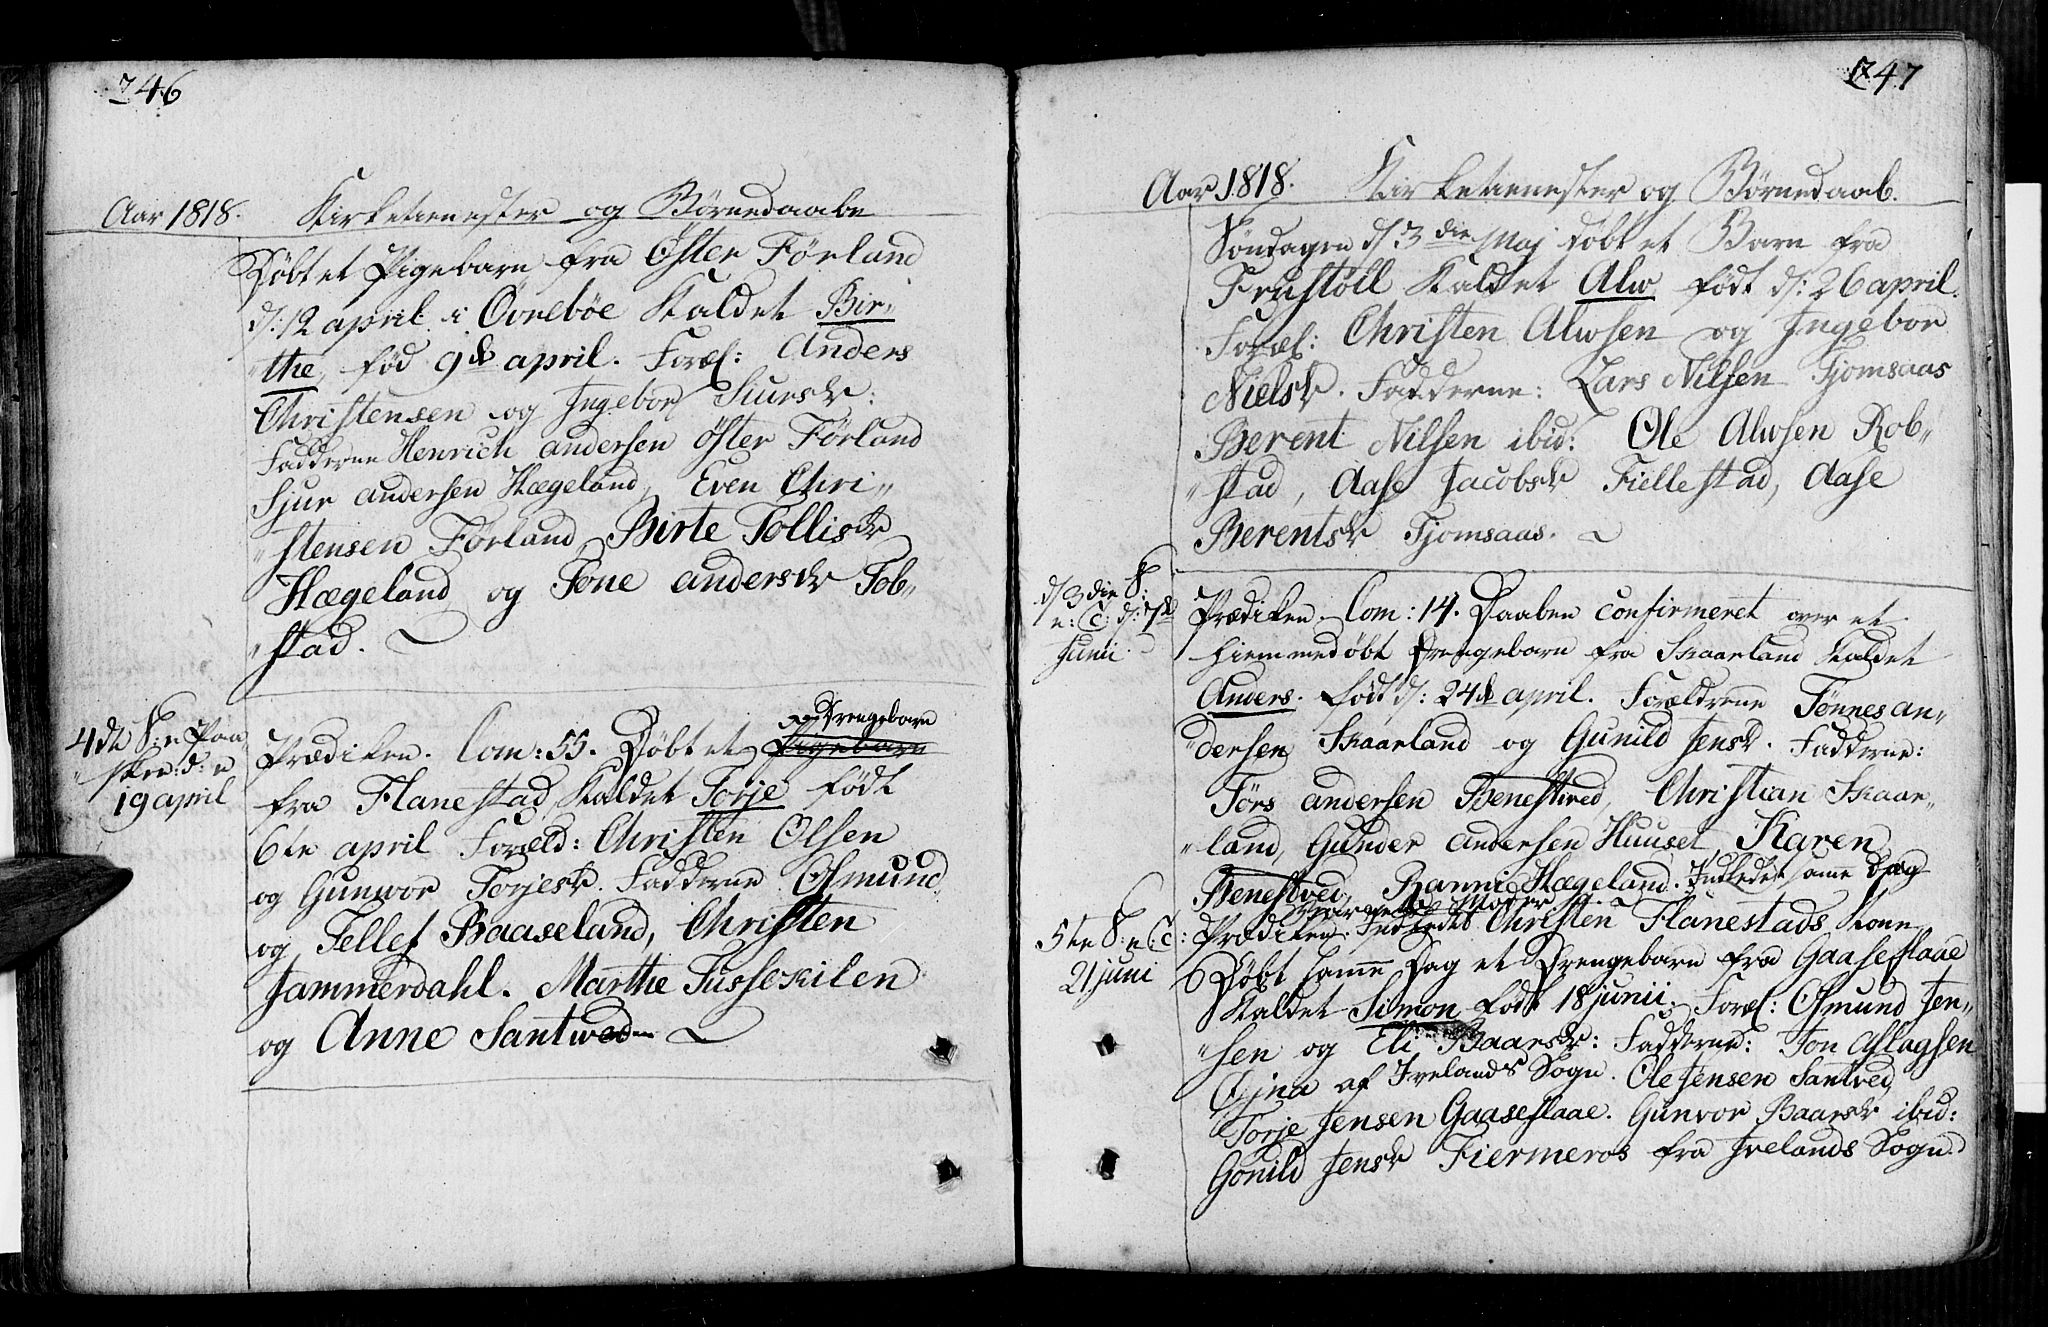 246
Aar 1818. Kirketienester og Børnedaabe
Døbt et Pigebarn fra Øster Førland
d: 12 april i Øvrebøe Kaldet Bir„
„the, fød 9de april. Foræl: Anders
Christensen og Ingebor Siursdr:
Fadderne Henrich andersen Øster Førland
Sjur andersen Hægeland, Even Chri„
„stensen Førland, Birte Tollisdr
Hægeland og Tone andersdr Tob„
„stad.
4de S: e Paa„
„ske: d: e
19 april
Prædiken. Com: 55. Døbt et Pigebarn Drengebarn
fra Flanestad, Kaldet Torje født
6te april Foræld: Christen Olsen
og Gunvor Torjesdr. Fadderne Osmund
og Tellef Baaseland, Christen
Jammerdahl. Marthe Tussekilen
og Anne Santved
247
Aar 1818. Kirketienester og Børnedaab.
Søndagen d: 3die Maj døbt et Barn fra
Frustøll Kaldet Alw, født d: 26 april.
Foræl: Christen Alwsen og Ingebor
Nielsdr. Fadderne: Lars Nilsen Tjomsaas
Berent Nilsen ibid: Ole Alwsen Rob„
„stad, Aase Jacobsdr Fiellestad, Aase
Berentsdr Tjomsaas.
d: 3die S:
e: C: d: 7de
Junii
Prædiken. Com: 14. Daaben confirmeret over et
hiemmedøbt Drengebarn fra Skaarland Kaldet
Anders. født d: 24de april. Forældrene Tønnes an„
„dersen Skaarland og Gunild Jensdr. Fadderne:
Tørs andersen Benestved, Christian Skaar„
„land, Gunder Andersen Huuset, Karen
Benestved, Ranni Hægeland. Indledet samme Dag
Barnets Moder
5te S: e: C:
21 juni
Prædiken. Indledet Christen Flanestads Kone
Døbt samme Dag et Drengebarn fra Gaaseflaae
Kaldet Simon født 18 junii. Foræl: Osmund Jen„
„sen og Eli Baarsdr: Fadderne: Jon Aslagsen
af Ivelands Sogn. Ole Jensen Santved,
Torje Jensen Gaaseflaae. Gunvor Baarsdr ibid:
Gonild Jensdr Fiermeros fra Ivelands Sogn.